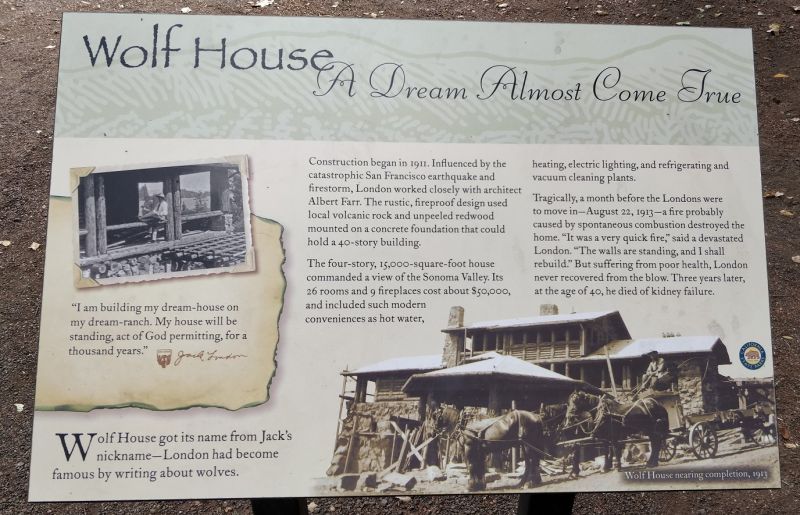 Wolf House
A Dream Almost Come True
"I am building my dream-house on
my dream-ranch. My house will be
standing, act of God permitting, for a
thousand years."
Jack London
Wolf House got its name from Jack's
nickname—London had become
famous by writing about wolves.
Construction began in 1911. Influenced by the
catastrophic San Francisco earthquake and
firestorm, London worked closely with architect
Albert Farr. The rustic, fireproof design used
local volcanic rock and unpeeled redwood
mounted on a concrete foundation that could
hold a 40-story building.
The four-story, 15,000-square-foot house
commanded a view of the Sonoma Valley. Its
26 rooms and 9 fireplaces cost about $50,000,
and included such modern
conveniences as hot water,
heating, electric lighting, and refrigerating and
vacuum cleaning plants.
Tragically, a month before the Londons were
to move in—August 22, 1913—a fire probably
caused by spontaneous combustion destroyed the
home. "It was a very quick fire," said a devastated
London. "The walls are standing, and I shall
rebuild." But suffering from poor health, London
never recovered from the blow. Three years later,
at the age of 40, he died of kidney failure.
Wolf House nearing completion, 1913